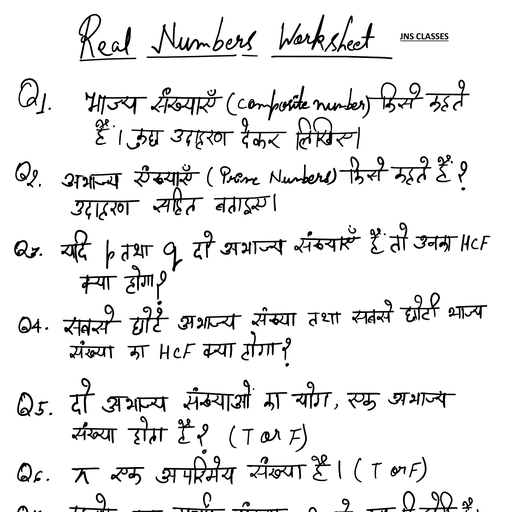 Real Numbers Worksheet JNS CLASSES
Q1. भाज्य संख्याएँ (composite number) किसे कहते
हैं। कुछ उदाहरण देकर लिखिए।
Q2. अभाज्य संख्याएँ (Prime Numbers) किसे कहते हैं?
उदाहरण सहित बताइए।
Q3. यदि p तथा q दो अभाज्य संख्याएँ हैं तो उनका HCF
क्या होगा?
Q4. सबसे छोटी अभाज्य संख्या तथा सबसे छोटी भाज्य
संख्या का HCF क्या होगा?
Q5. दो अभाज्य संख्याओं का योग, एक अभाज्य
संख्या होता है? (T or F)
Q6. π एक अपरिमेय संख्या है। (T or F)